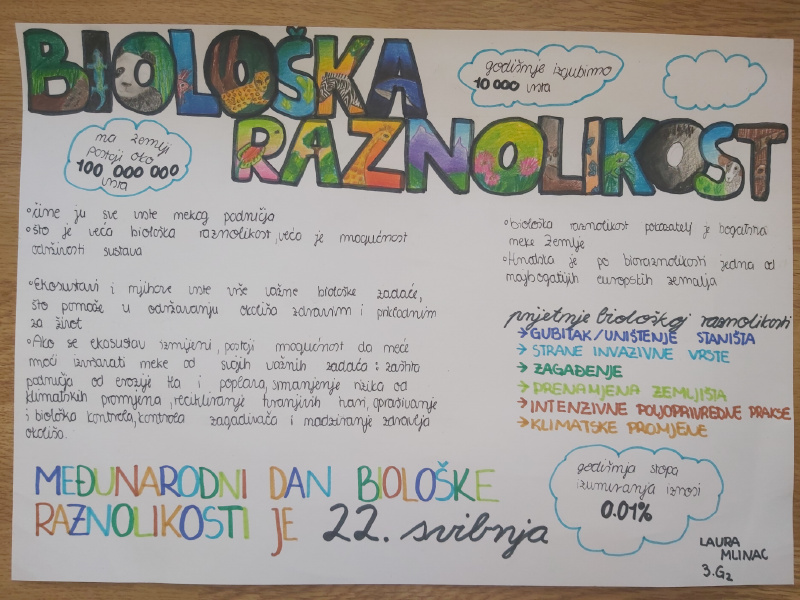 BIOLOŠKA
RAZNOLIKOST
godišnje izgubimo
10 000 vrsta
na zemlji
postoji oko
100 000 000
vrsta
◦čine ju sve vrste nekog područja
◦što je veća biološka raznolikost, veća je mogućnost
održivosti sustava
◦Ekosustavi i njihove vrste vrše važne biološke zadaće,
što pomaže u održavanju okoliša zdravim i prikladnim
za život
◦Ako se ekosustav izmijeni, postoji mogućnost da neće
moći izvršavati neke od svojih važnih zadaća: zaštita
područja od erozije tla i poplava, smanjenje rizika od
klimatskih promjena, recikliranje hranjivih tvari, oprašivanje
i biološka kontrola, kontrola zagađivača i nadziranje zdravlja
okoliša.
◦biološka raznolikost pokazatelj je bogatstva
neke Zemlje
◦Hrvatska je po bioraznolikosti jedna od
najbogatijih europskih zemalja
prijetnje biološkoj raznolikosti
→GUBITAK/UNIŠTENJE STANIŠTA
→STRANE INVAZIVNE VRSTE
→ZAGAĐENJE
→PRENAMJENA ZEMLJIŠTA
→INTENZIVNE POLJOPRIVREDNE PRAKSE
→KLIMATSKE PROMJENE
MEĐUNARODNI DAN BIOLOŠKE
RAZNOLIKOSTI JE 22. svibnja
godišnja stopa
izumiranja iznosi
0.01%
LAURA
MLINAC
3.G2